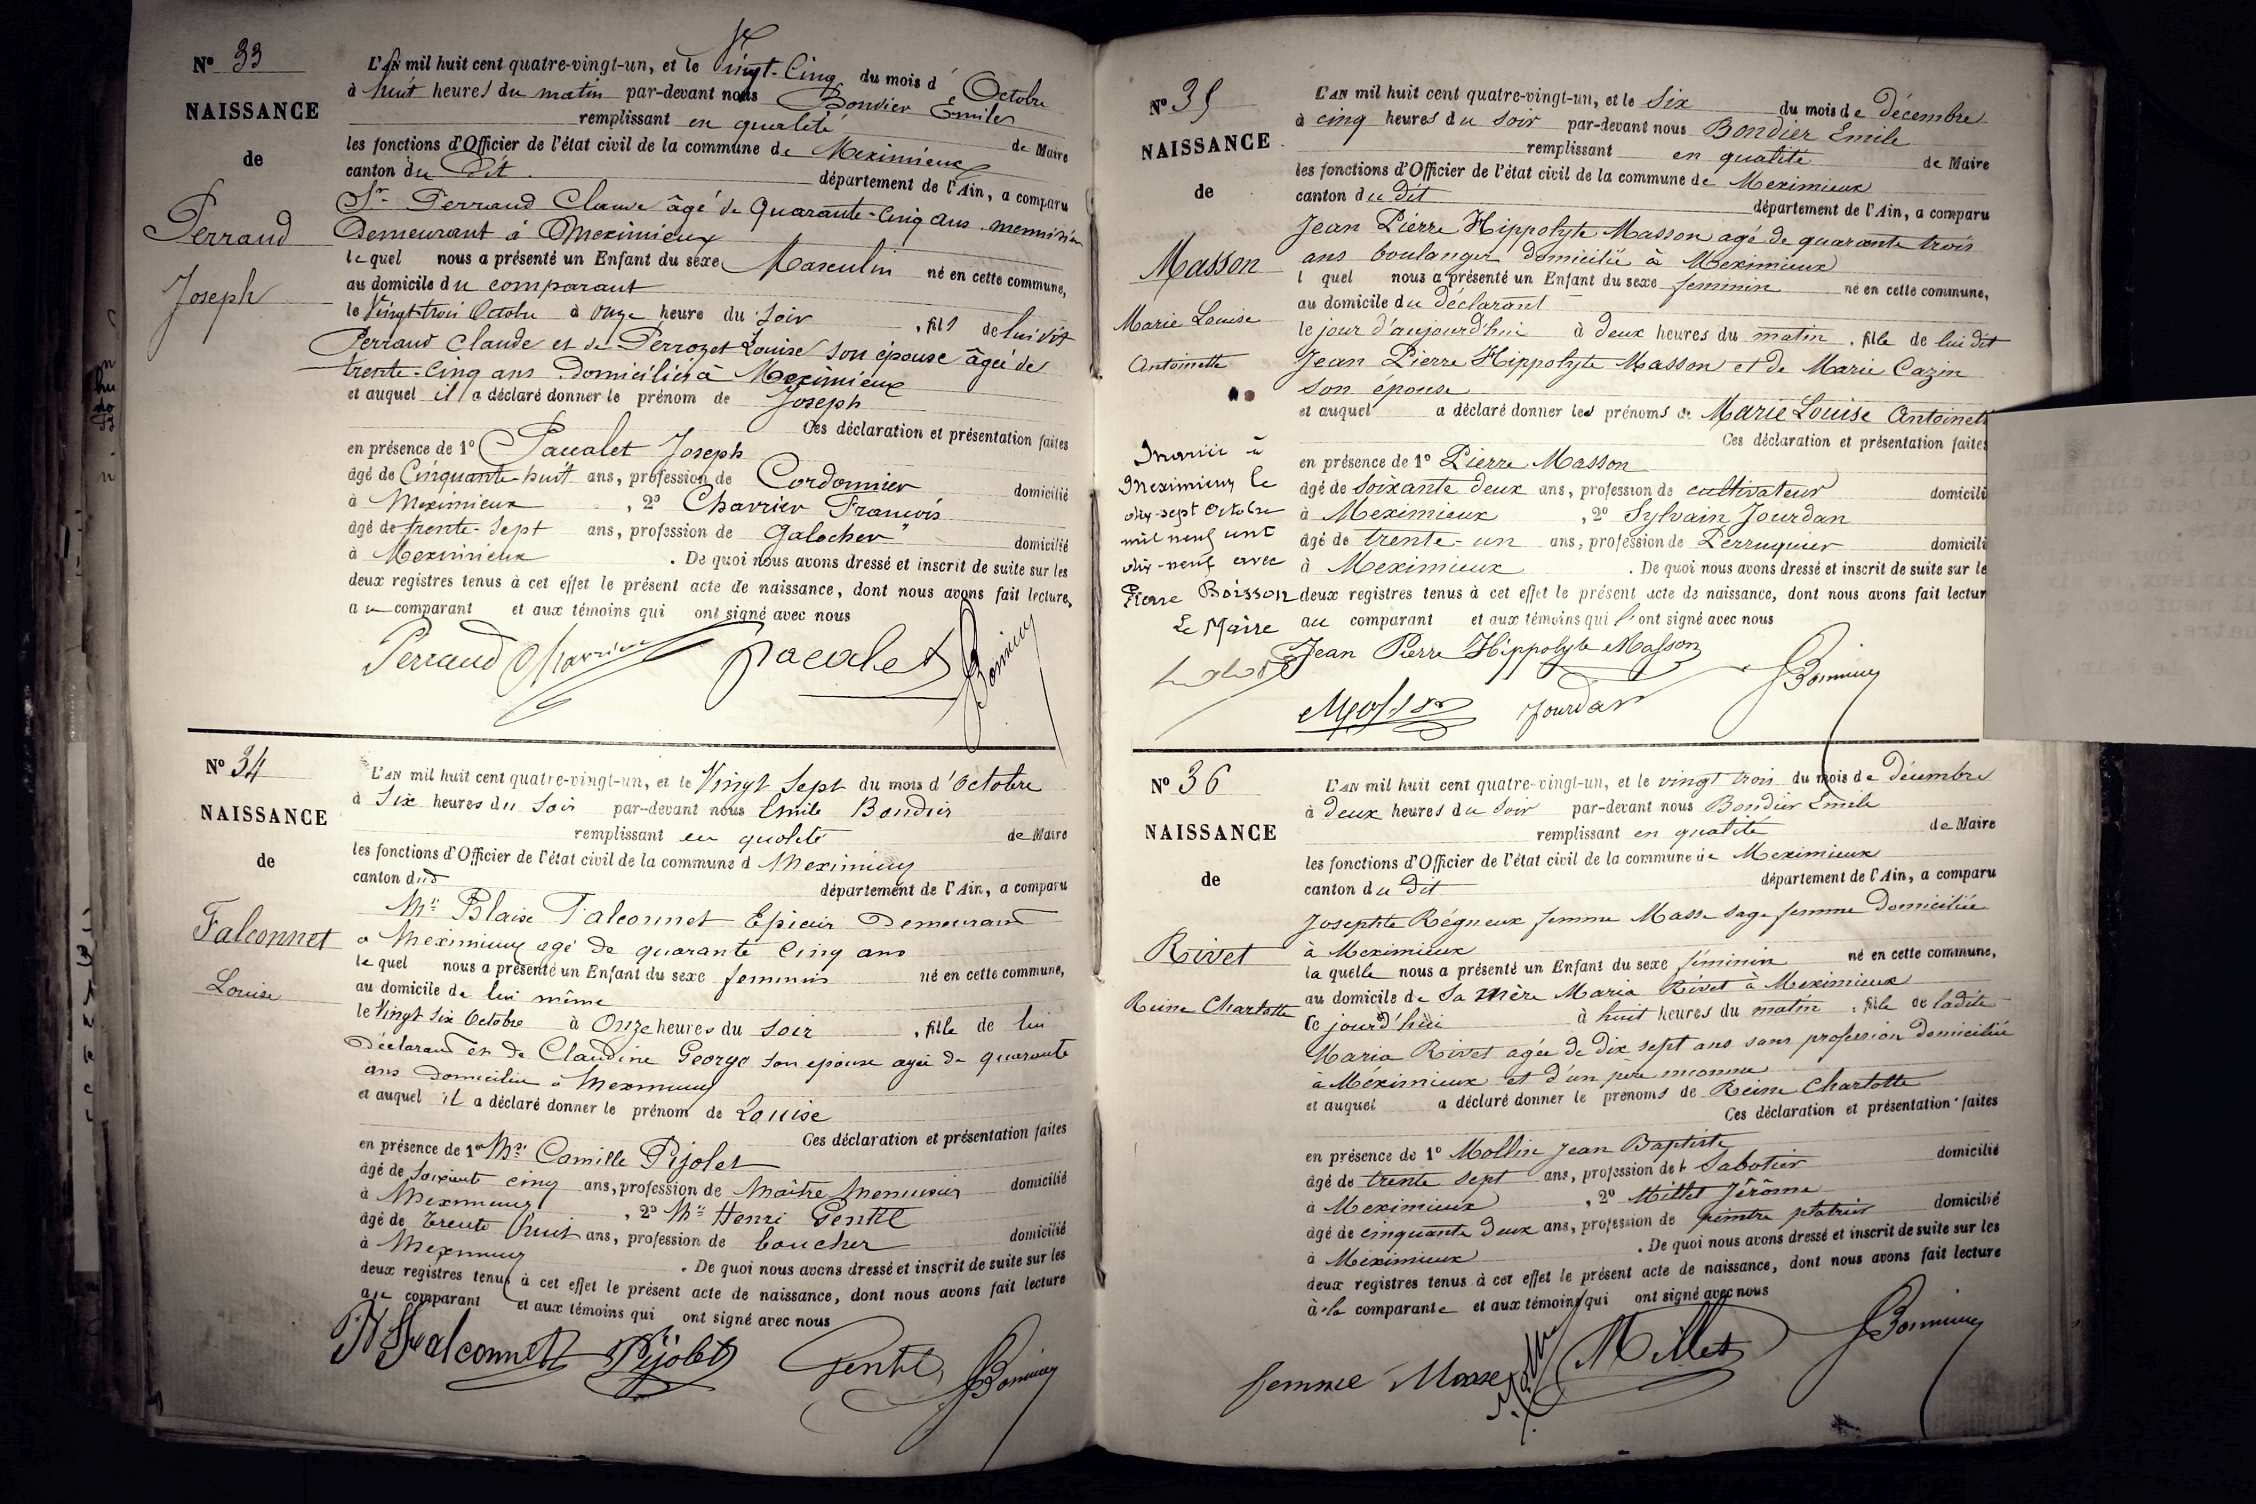 Nº 33
NAISSANCE
de
Perraud
Joseph
L'AN mil huit cent quatre-vingt-un, et le Vingt-Cinq du mois d' Octobre
à huit heures du matin par-devant nous Bondier Emile
remplissant en qualité de Maire
les fonctions d'Officier de l'état civil de la commune de Meximieux
canton du Dit département de l'Ain, a comparu
Sr Perraud Claude âgé de Quarante-Cinq ans menuisier
Demeurant à Meximieux
lequel nous a présenté un Enfant du sexe Masculin né en cette commune,
au domicile du comparant
le Vingt trois Octobre à onze heure du soir, fils de lui dit
Perraud Claude et de Perrozet Louise son épouse âgée de
trente-cinq ans Domiciliés à Meximieux
et auquel il a déclaré donner le prénom de Joseph
Ces déclaration et présentation faites
en présence de 1º Pacalet Joseph
âgé de Cinquante huit ans, profession de Cordonnier domicilié
à Meximieux, 2º Charrier François
âgé de trente-sept ans, profession de Galocher domicilié
à Meximieux. De quoi nous avons dressé et inscrit de suite sur les
deux registres tenus à cet effet le présent acte de naissance, dont nous avons fait lecture,
au comparant et aux témoins qui ont signé avec nous
Perraud Charrier Pacalet
Nº 34
NAISSANCE
de
Falconnet
Louise
L'AN mil huit cent quatre-vingt-un, et le Vingt Sept du mois d'Octobre
à Six heures du Soir par-devant nous Emile Bondier
remplissant en qualité de Maire
les fonctions d'Officier de l'état civil de la commune d Meximieux
canton dud département de l'Ain, a comparu
Mr Blaise Falconnet Epicier Demeurant
a Meximieux agé de quarante cinq ans
lequel nous a présenté un Enfant du sexe feminin né en cette commune,
au domicile de lui même
le Vingt Six Octobre à Onze heures du soir, fille de lui
Déclarant et de Claudine George son epouse agée de quarante
ans domiciliée à Meximieux
et auquel il a déclaré donner le prénom de Louise
Ces déclaration et présentation faites
en présence de 1º Mr Camille Pijolet
âgé de Soixante cinq ans, profession de Maître Menuisier domicilié
à Meximieux, 2º Mr Henri Gentil
âgé de trente huit ans, profession de boucher domicilié
à Meximieux. De quoi nous avons dressé et inscrit de suite sur les
deux registres tenus à cet effet le présent acte de naissance, dont nous avons fait lecture
au comparant et aux témoins qui ont signé avec nous
Falconnet Pijolet Gentil
Nº 35
NAISSANCE
de
Masson
Marie Louise
Antoinette
Marié à
Meximieux le
dix-sept Octobre
mil neuf cent
dix-neuf avec
Pierre Boisson
Le Maire
L'AN mil huit cent quatre-vingt-un, et le Six du mois de décembre
à cinq heures du soir par-devant nous Bondier Emile
remplissant en qualité de Maire
les fonctions d'Officier de l'état civil de la commune de Meximieux
canton du dit département de l'Ain, a comparu
Jean Pierre Hippolyte Masson agé de quarante trois
ans boulanger domicilié à Meximieux
l quel nous a présenté un Enfant du sexe feminin né en cette commune,
au domicile du déclarant
le jour d'aujourd'hui à deux heures du matin, fille de lui dit
Jean Pierre Hippolyte Masson et de Marie Cazin
son épouse
et auquel a déclaré donner les prénoms de Marie Louise Antoinett
Ces déclaration et présentation faites
en présence de 1º Pierre Masson
âgé de soixante deux ans, profession de cultivateur domicili
à Meximieux, 2º Sylvain Jourdan
âgé de trente-un ans, profession de Perruquier domicili
à Meximieux. De quoi nous avons dressé et inscrit de suite sur le
deux registres tenus à cet effet le présent acte de naissance, dont nous avons fait lectur
au comparant et aux témoins qui l'ont signé avec nous
Jean Pierre Hippolyte Masson
Masson Jourdan
Nº 36
NAISSANCE
de
Rivet
Reine Charlotte
L'AN mil huit cent quatre-vingt-un, et le vingt trois du mois de Décembre
à deux heures du soir par-devant nous Bondier Emile
remplissant en qualité de Maire
les fonctions d'Officier de l'état civil de la commune de Meximieux
canton du dit département de l'Ain, a comparu
Josephte Régneux femme Masse sage femme domiciliée
à Meximieux
laquelle nous a présenté un Enfant du sexe féminin né en cette commune,
au domicile de Sa mère Maria Rivet à Meximieux
Ce jourd'hui à huit heures du matin, fille de ladite
Maria Rivet agée de dix sept ans sans profession domiciliée
à Méximieux et d'un père inconnu
et auquel a déclaré donner le prénoms de Reine Charlotte
Ces déclaration et présentation faites
en présence de 1º Mollin Jean Baptiste
âgé de trente sept ans, profession de Sabotier domicilié
à Meximieux, 2º Millet Jérôme
âgé de cinquante deux ans, profession de peintre platrier domicilié
à Meximieux. De quoi nous avons dressé et inscrit de suite sur les
deux registres tenus à cet effet le présent acte de naissance, dont nous avons fait lecture
à la comparante et aux témoins qui ont signé avec nous
femme Masse Millet